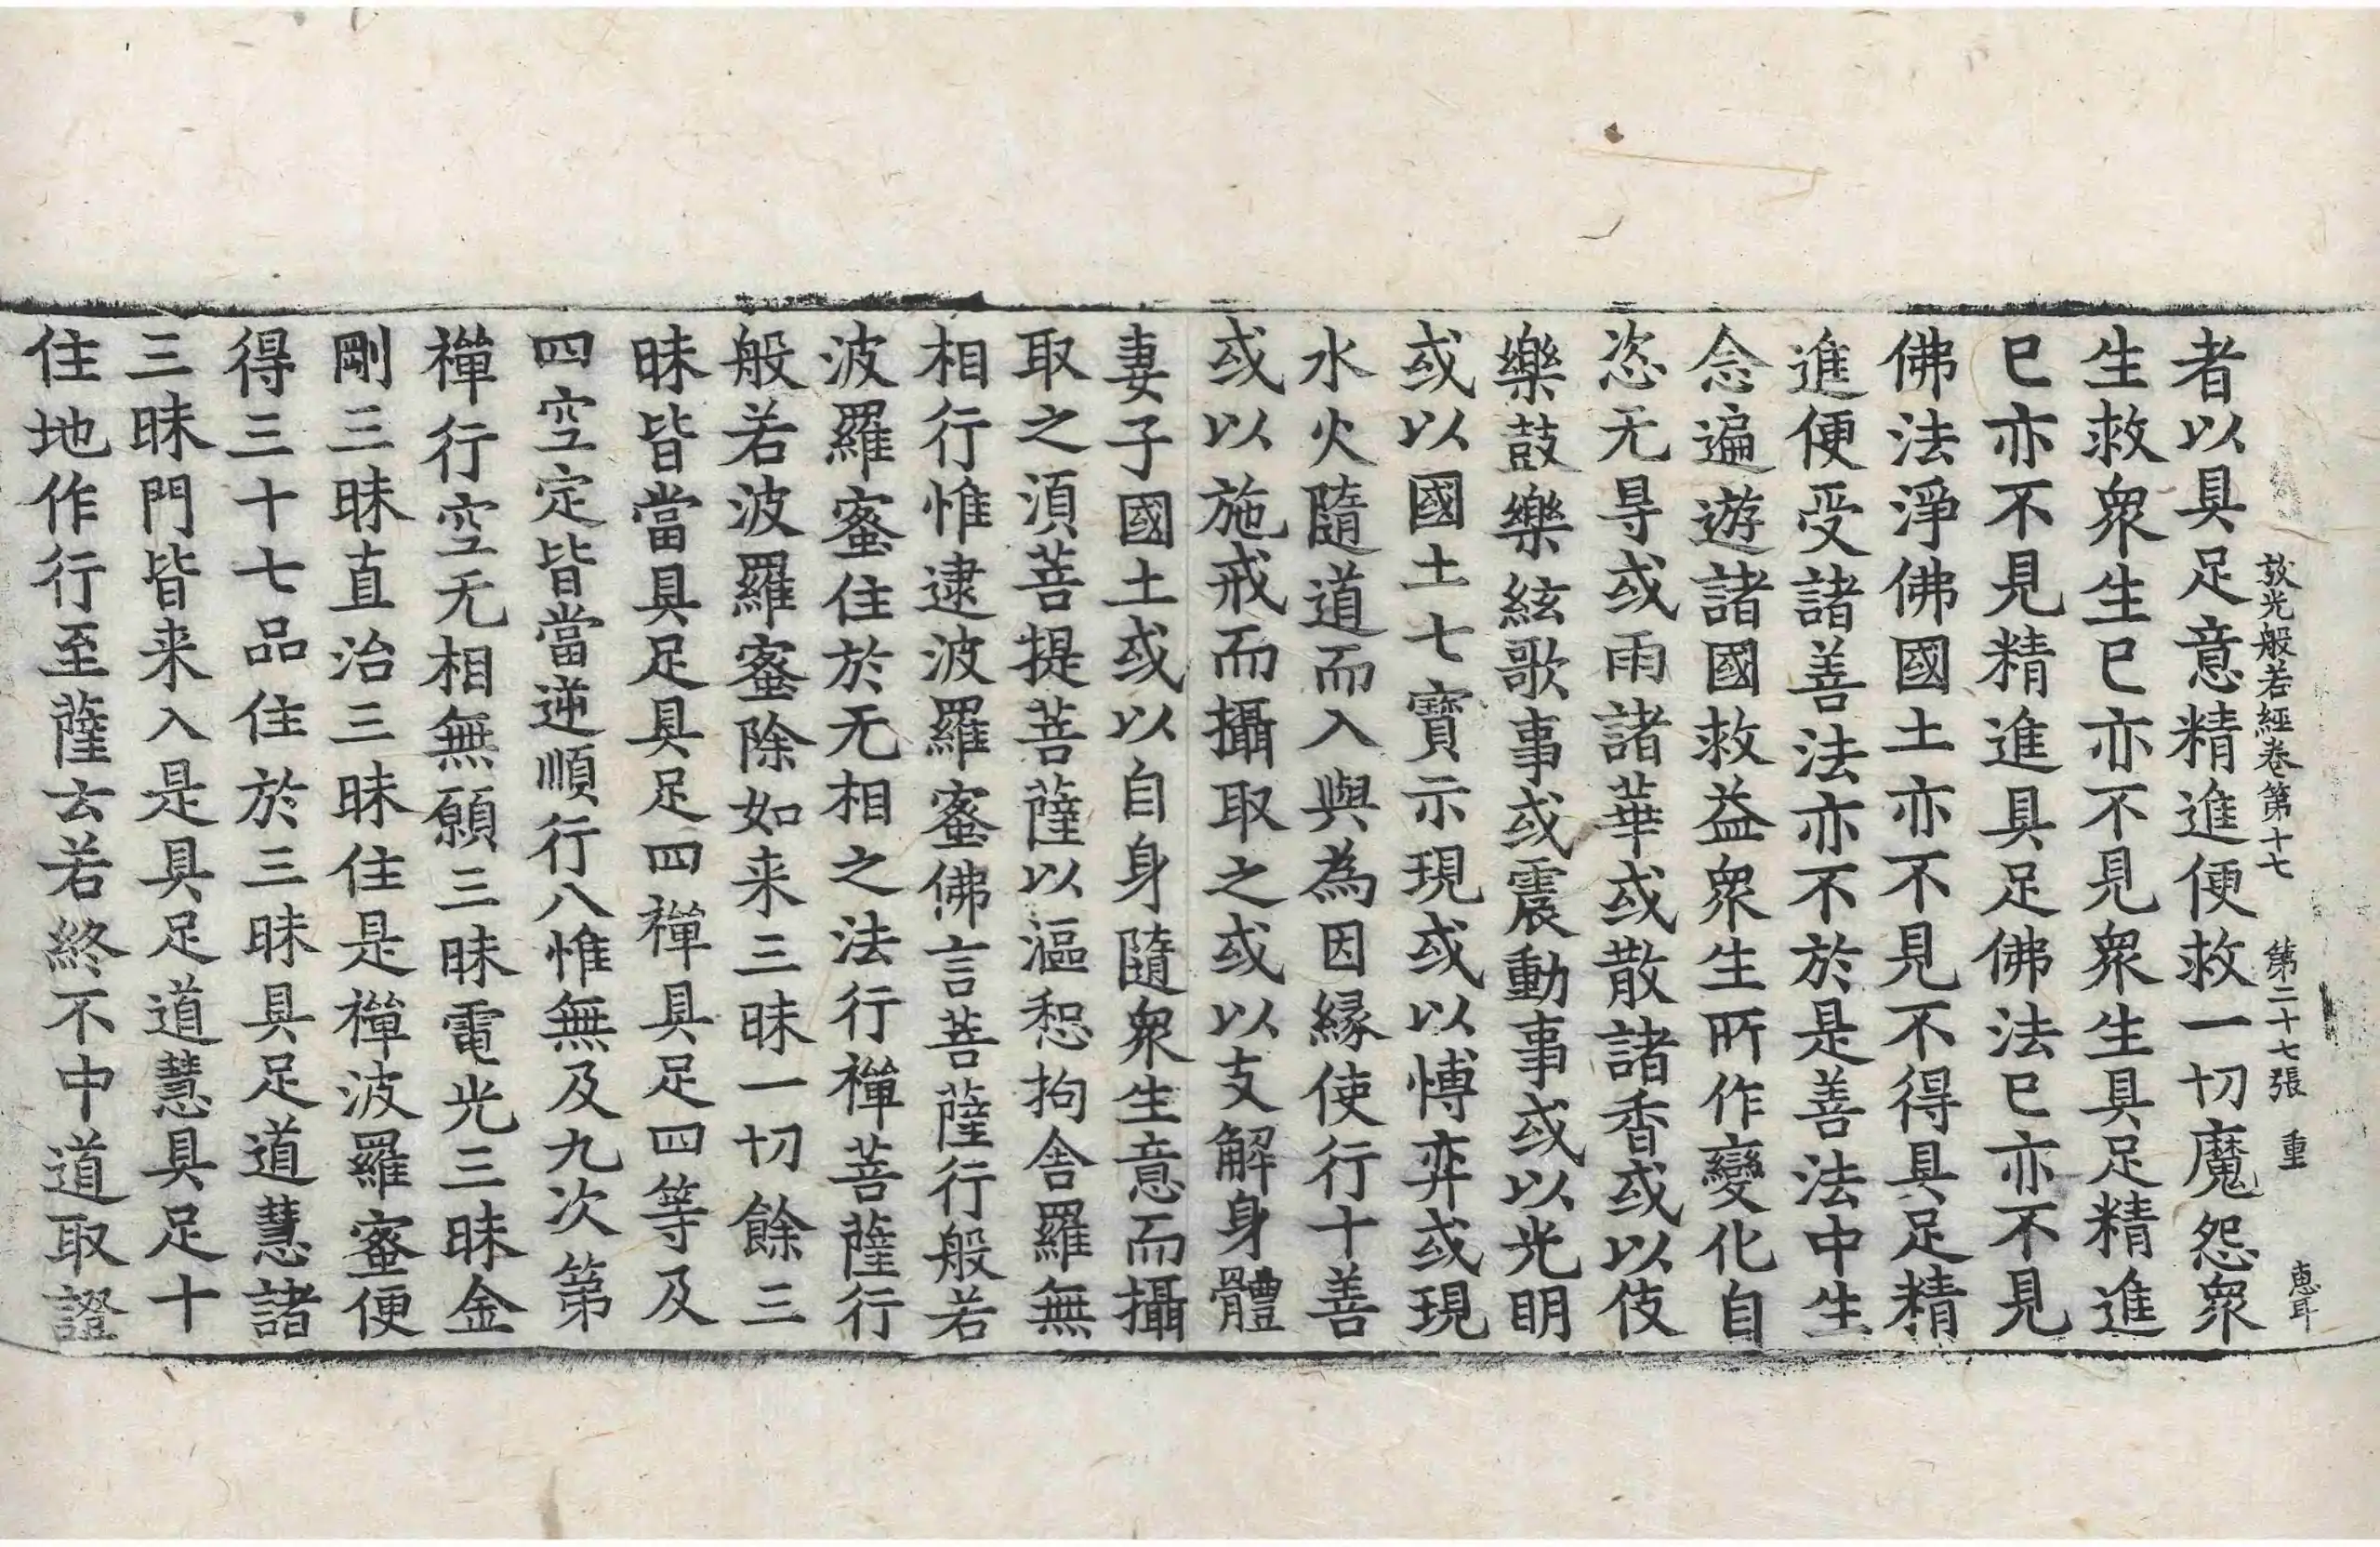 放光般若經卷第十七　第二十七張　重　惠耳
者以具足意精進便救一切魔怨衆
生救衆生已亦不見衆生具足精進
已亦不見精進具足佛法已亦不見
佛法淨佛國土亦不見不得具足精
進便受諸善法亦不於是善法中生
念遍遊諸國救益衆生所作變化自
恣无㝵或雨諸華或散諸香或以伎
樂鼓樂絃歌事或震動事或以光明
或以國土七寶示現或以愽弈或現
水火隨道而入與為因緣使行十善
或以施戒而攝取之或以支解身體
妻子國土或以自身隨衆生意而攝
取之須菩提菩薩以漚惒拘舍羅無
相行惟逮波羅蜜佛言菩薩行般若
波羅蜜住於无相之法行禪菩薩行
般若波羅蜜除如来三昧一切餘三
昧皆當具足具足四禪具足四等及
四空定皆當逆順行八惟無及九次第
禪行空无相無願三昧電光三昧金
剛三昧直治三昧住是禪波羅蜜便
得三十七品住於三昧具足道慧諸
三昧門皆来入是具足道慧具足十
住地作行至薩云若終不中道取證